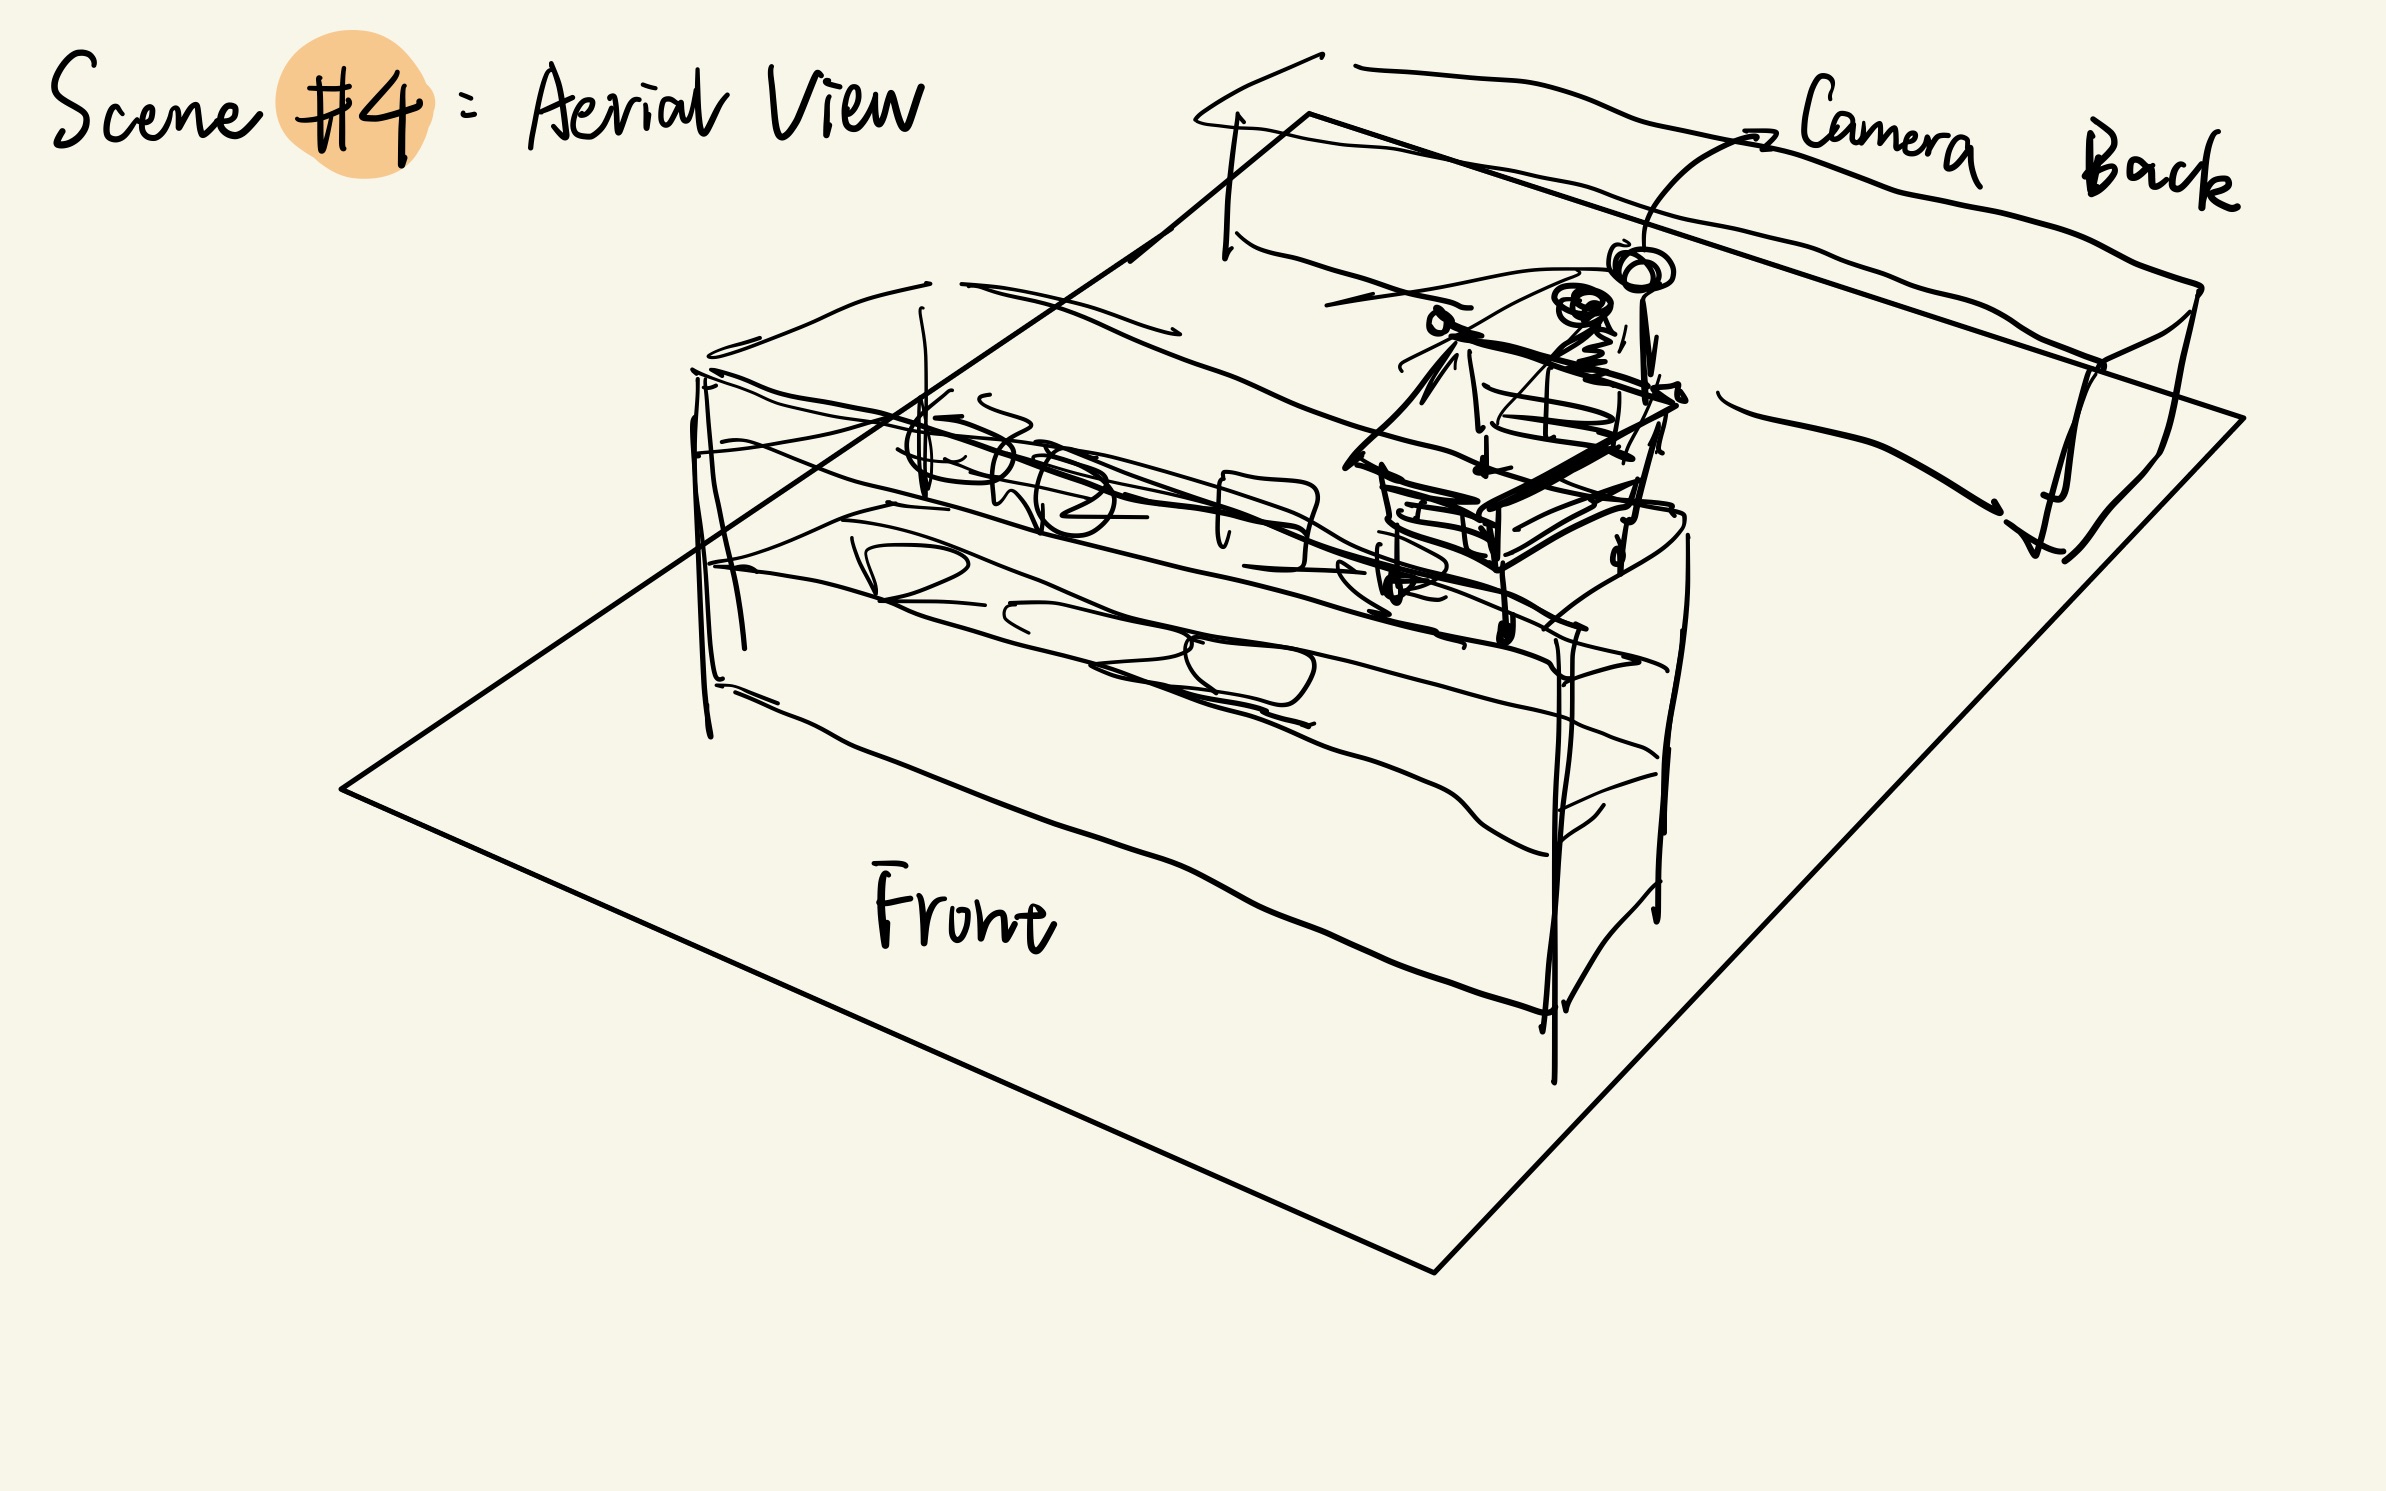 Scene #4 : Aerial View
Camera
Back
Front